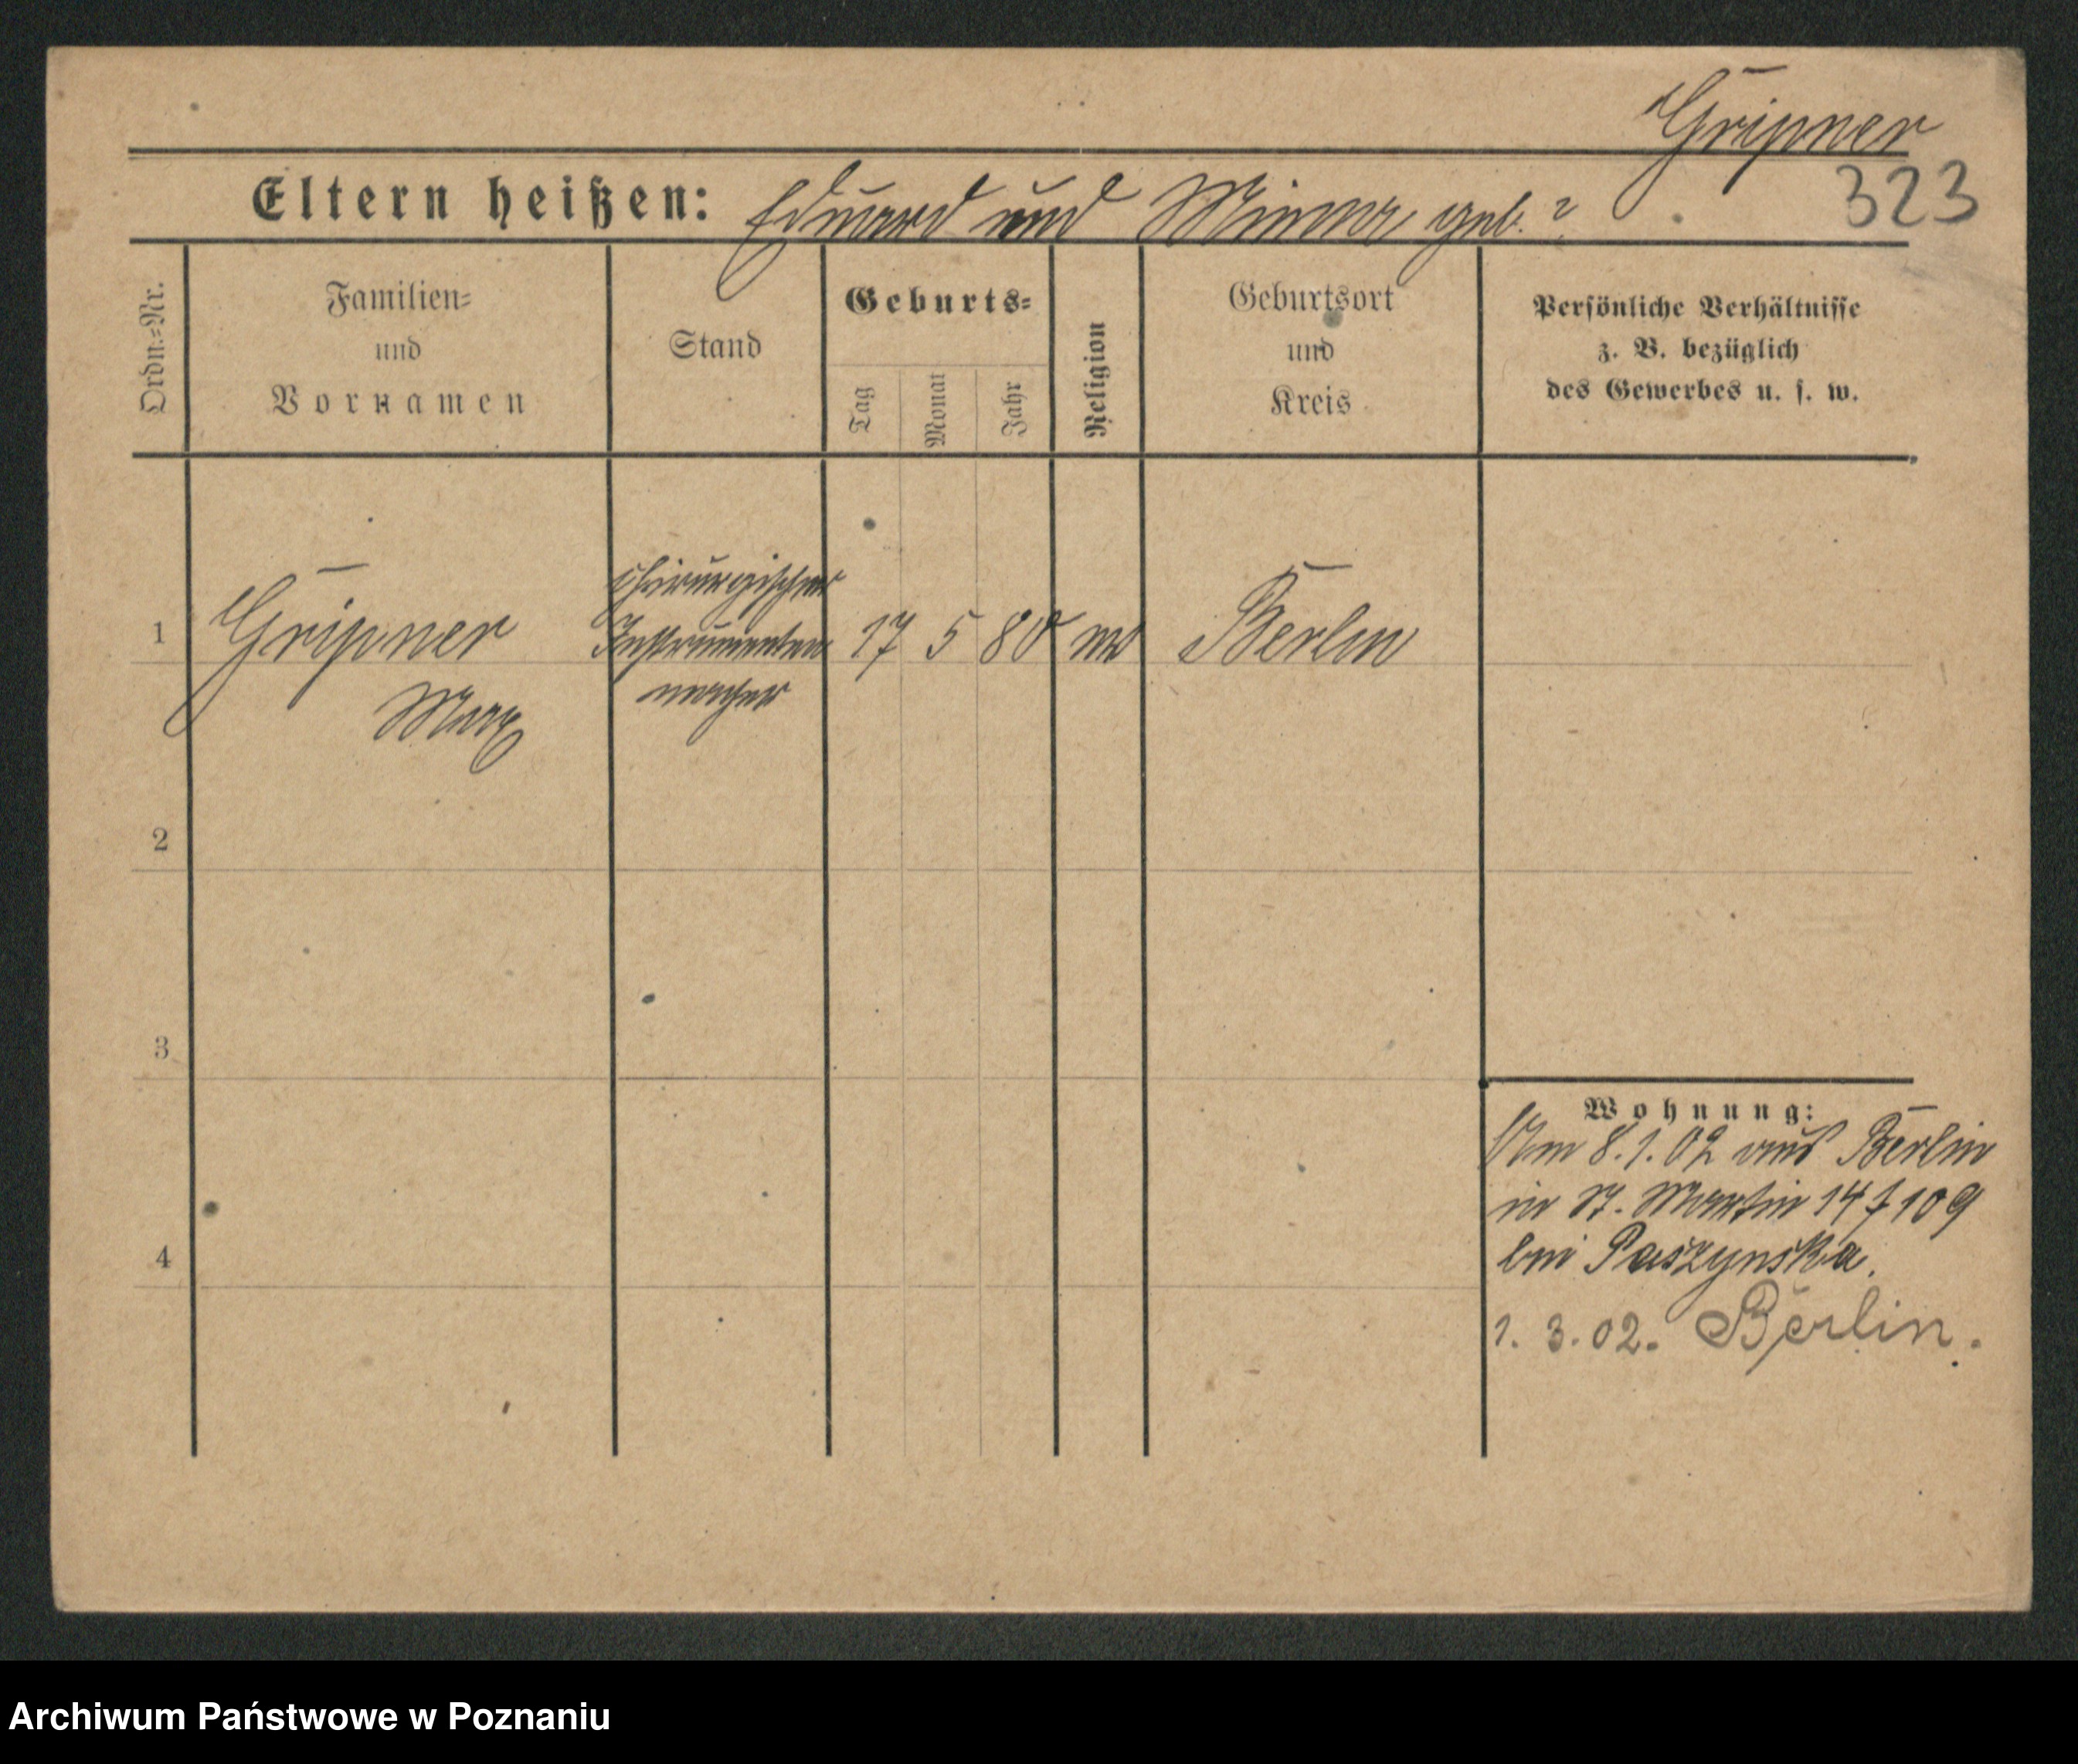 Gripner
323
Eltern heißen: Eduard und Minna geb. ?
Ordn.-Nr.
Familien-
und
Vornamen
Stand
Geburts-
Tag
Monat
Jahr
Religion
Geburtsort
und
Kreis
Persönliche Verhältnisse
z. B. bezüglich
des Gewerbes u. s. w.
1
Gripner
Max
chirurgischer
Instrumenten
macher
17 5 80
Berlin
2
3
4
Wohnung:
Am 8.1.02 aus Berlin
in St. Martin 14
bei Paszynska.
1. 3. 02. Berlin.
Archiwum Państwowe w Poznaniu